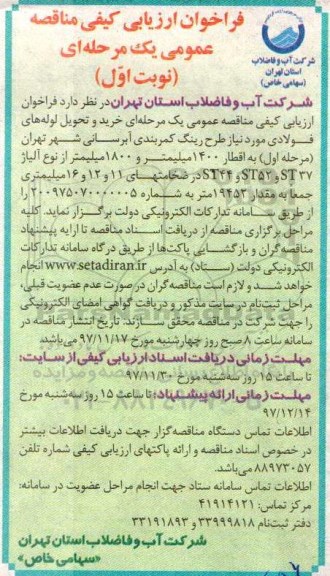 فراخوان ارزیابی کیفی مناقصه
عمومی یک مرحله‌ای
(نوبت اوّل)
شرکت آب و فاضلاب
استان تهران
(سهامی خاص)
شرکت آب و فاضلاب استان تهران در نظر دارد فراخوان
ارزیابی کیفی مناقصه عمومی یک مرحله‌ای خرید و تحویل لوله‌های
فولادی مورد نیاز طرح رینگ کمربندی آبرسانی شهر تهران
(مرحله اول) به اقطار ۱۴۰۰میلیمتر و ۱۸۰۰میلیمتر از نوع آلیاژ
ST۳۷ و ST۵۲ و ST۴۴ در ضخامتهای ۱۱ و ۱۲ و ۱۶میلیمتری
جمعاً به مقدار ۱۹۴۵۳متر به شماره ۲۰۰۹۷۵۰۷۰۰۰۰۰۰۵ را
از طریق سامانه تدارکات الکترونیکی دولت برگزار نماید. کلیه
مراحل برگزاری مناقصه از دریافت اسناد مناقصه تا ارایه پیشنهاد
مناقصه‌گران و بازگشایی پاکت‌ها از طریق درگاه سامانه تدارکات
الکترونیکی دولت (ستاد) به آدرس www.setadiran.ir انجام
خواهد شد و لازم است مناقصه‌گران در صورت عدم عضویت قبلی،
مراحل ثبت‌نام در سایت مذکور و دریافت گواهی امضای الکترونیکی
را جهت شرکت در مناقصه محقق سازند. تاریخ انتشار مناقصه در
سامانه ساعت ۸ صبح روز چهارشنبه مورخ ۹۷/۱۱/۱۷ می‌باشد.
مهلت زمانی دریافت اسناد ارزیابی کیفی از سایت:
تا ساعت ۱۵ روز سه‌شنبه مورخ ۹۷/۱۱/۳۰
مهلت زمانی ارائه پیشنهاد: تا ساعت ۱۵ روز سه‌شنبه مورخ
۹۷/۱۲/۱۴
اطلاعات تماس دستگاه مناقصه‌گزار جهت دریافت اطلاعات بیشتر
در خصوص اسناد مناقصه و ارائه پاکتهای ارزیابی کیفی شماره تلفن
۸۸۹۷۳۰۵۷ می‌باشد.
اطلاعات تماس سامانه ستاد جهت انجام مراحل عضویت در سامانه:
مرکز تماس: ۴۱۹۱۴۱۲۱
دفتر ثبت‌نام ۳۳۹۹۹۸۱۸ و ۳۳۱۹۱۸۹۳
شرکت آب و فاضلاب استان تهران
«سهامی خاص»